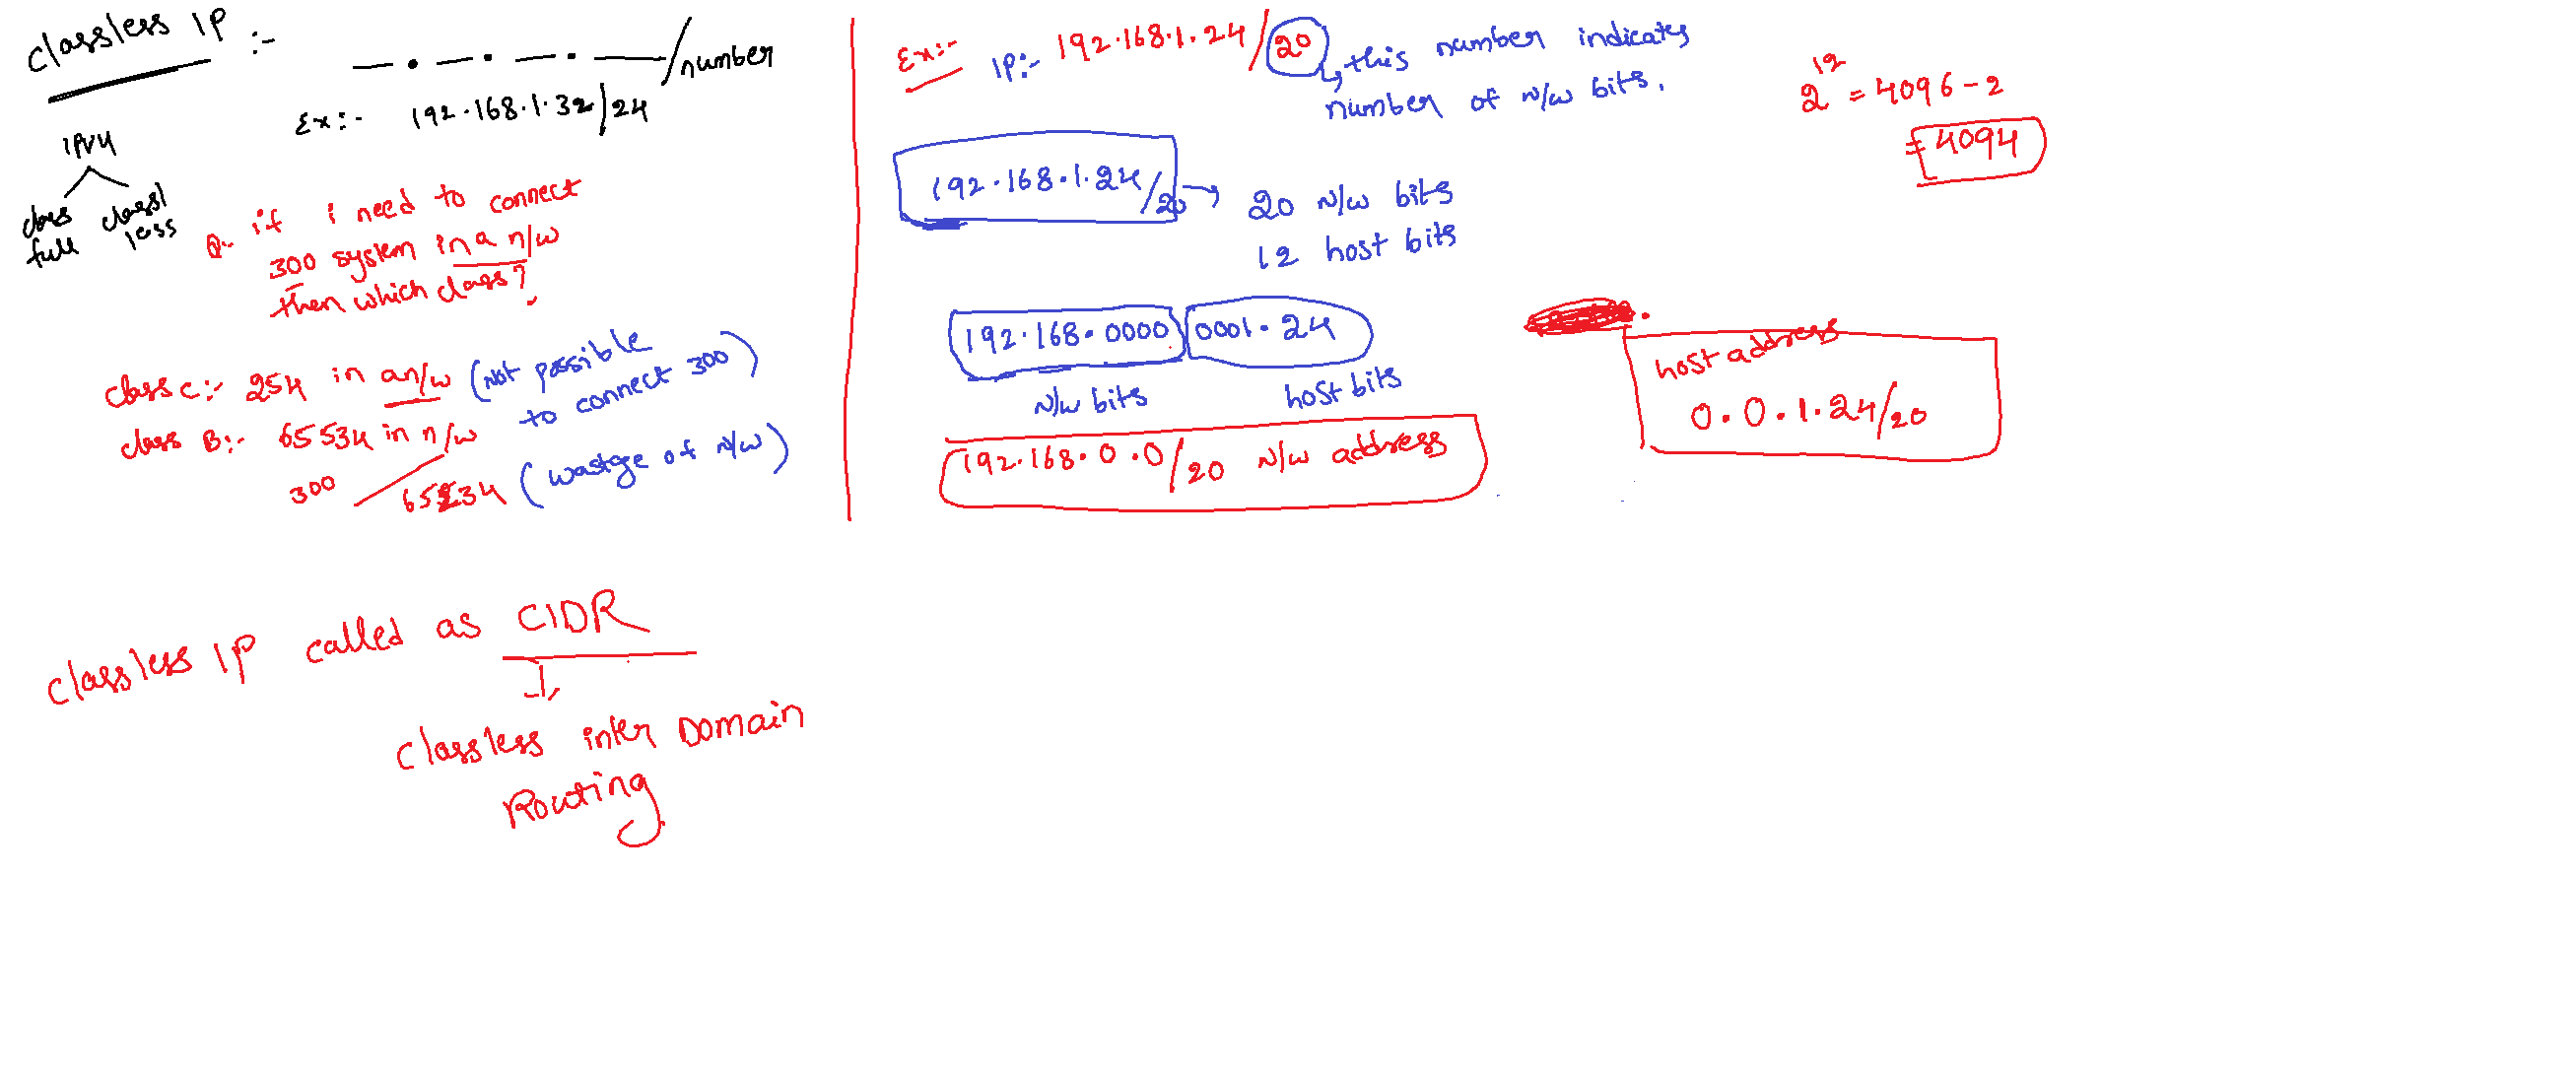 classless IP :-
— . — . — . — /number
Ex:- 192.168.1.32/24
IPV4
class full
classl less
Q:- if i need to connect
300 system in a n/w
then which class?
class C:- 254 in a n/w (Not possible to connect 300)
class B:- 65534 in n/w
300 / 65534 (wastge of N/W)
classless IP called as CIDR
classless inter Domain
Routing
Ex:- IP:- 192.168.1.24/20
this number indicates
number of N/W bits.
2^12 = 4096-2
= 4094
192.168.1.24/20 → 20 N/W bits
12 host bits
192.168.0000 0001.24
N/W bits host bits
192.168.0.0/20 N/W address
host address
0.0.1.24/20